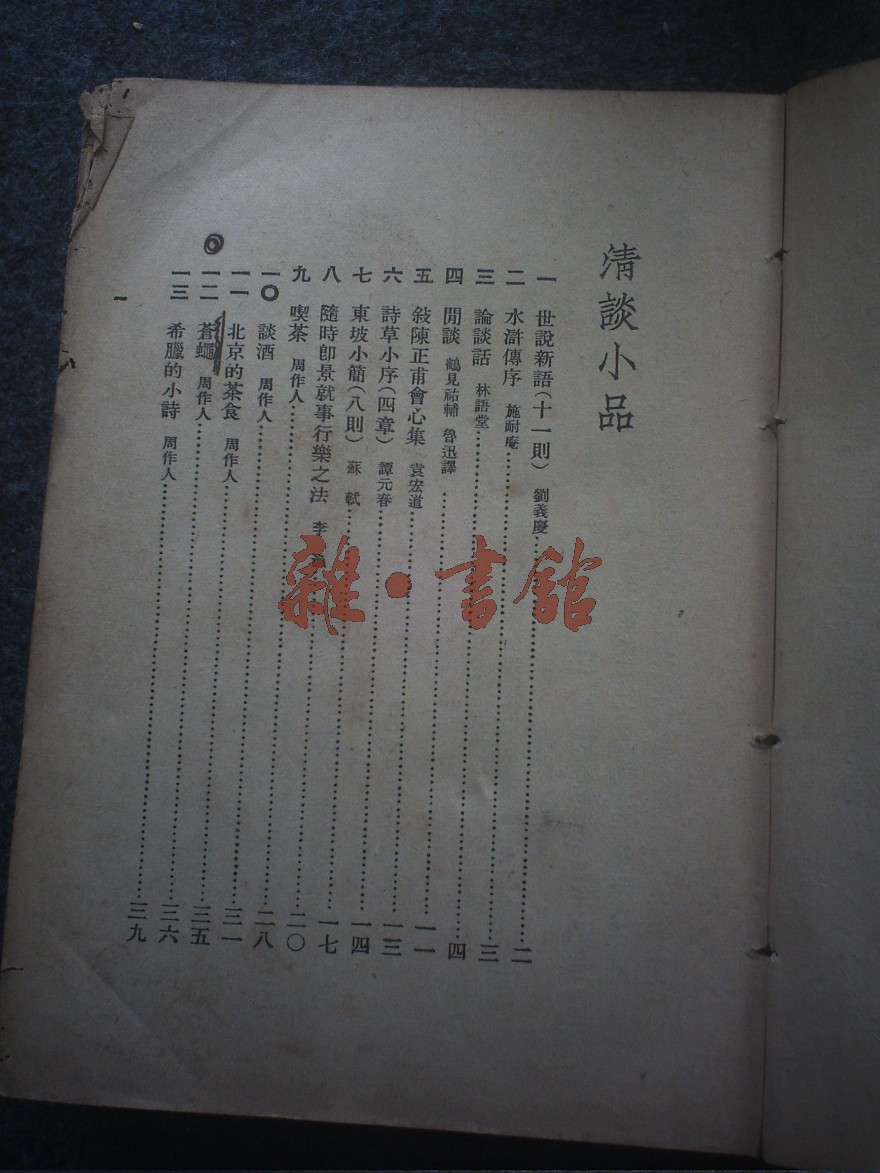 清談小品
一 世說新語(十一則) 劉義慶 二
二 水滸傳序 施耐庵 三
三 論談話 林語堂 四
四 閒談 鶴見祐輔 魯迅譯 一一
五 敍陳正甫會心集 袁宏道 一三
六 詩草小序(四章) 譚元春 一四
七 東坡小簡(八則) 蘇軾 一七
八 隨時卽景就事行樂之法 李 二〇
九 喫茶 周作人 二八
一〇 談酒 周作人 三一
一一 北京的茶食 周作人 三五
一二 蒼蠅 周作人 三六
一三 希臘的小詩 周作人 三九
一
雜·書館